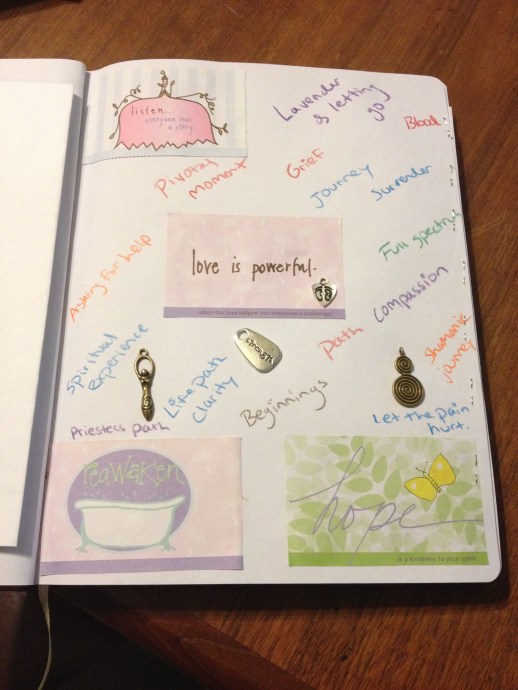 listen...
everyone has
a story.
Lavender
& letting
go
Blood
Pivotal
moment
Grief
Journey
Surrender
Full spectrum
Asking for help
love is powerful.
when has love helped you overcome a challenge?
Compassion
Spiritual
experience
strength
Path
Shamanic
journey
Life Path
Clarity
Beginnings
Let the pain
hurt.
Priestess path
reawaken
hope
is a kindness to your spirit.